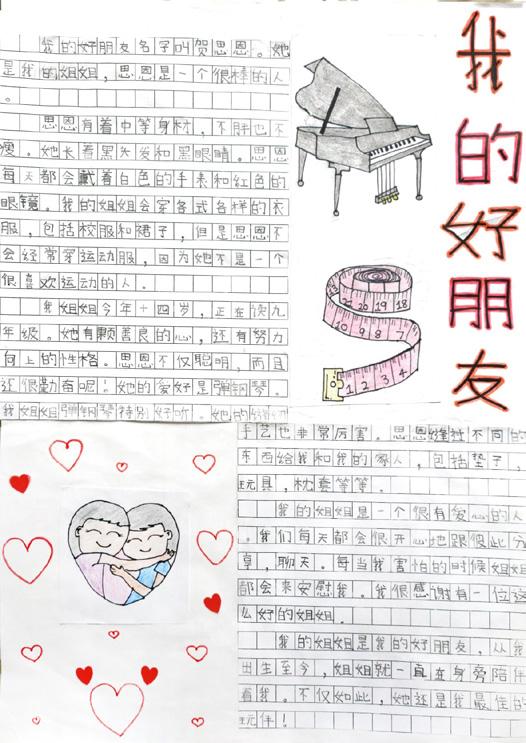 我的好朋友
我的好朋友名字叫贺思恩。她
是我的姐姐，思恩是一个很棒的人
。
思恩有着中等身材，不胖也不
瘦。她长着黑头发和黑眼睛。思恩
每天都会戴着白色的手表和红色的
眼镜。我的姐姐会穿各式各样的衣
服，包括校服和裙子，但是思恩不
会经常穿运动服，因为她不是一个
很喜欢运动的人。
我姐姐今年十四岁，正在读九
年级。她有颗善良的心，还有努力
向上的性格。思恩不仅聪明，而且
还很勤奋呢！她的爱好是弹钢琴。
我姐姐弹钢琴特别好听。她的缝纫
手艺也非常厉害。思恩缝过不同的
东西给我和我的家人，包括垫子，
玩具，枕套等等。
我的姐姐是一个很有爱心的人
。我们每天都会很开心地跟彼此分
享，聊天。每当我害怕的时候姐姐
都会来安慰我。我很感谢有一位这
么好的姐姐。
我的姐姐是我的好朋友，从我
出生至今，姐姐就一直在身旁陪伴
着我。不仅如此，她还是我最佳的
玩伴！
20 19 18
10 9 8 7
1 2 3 4